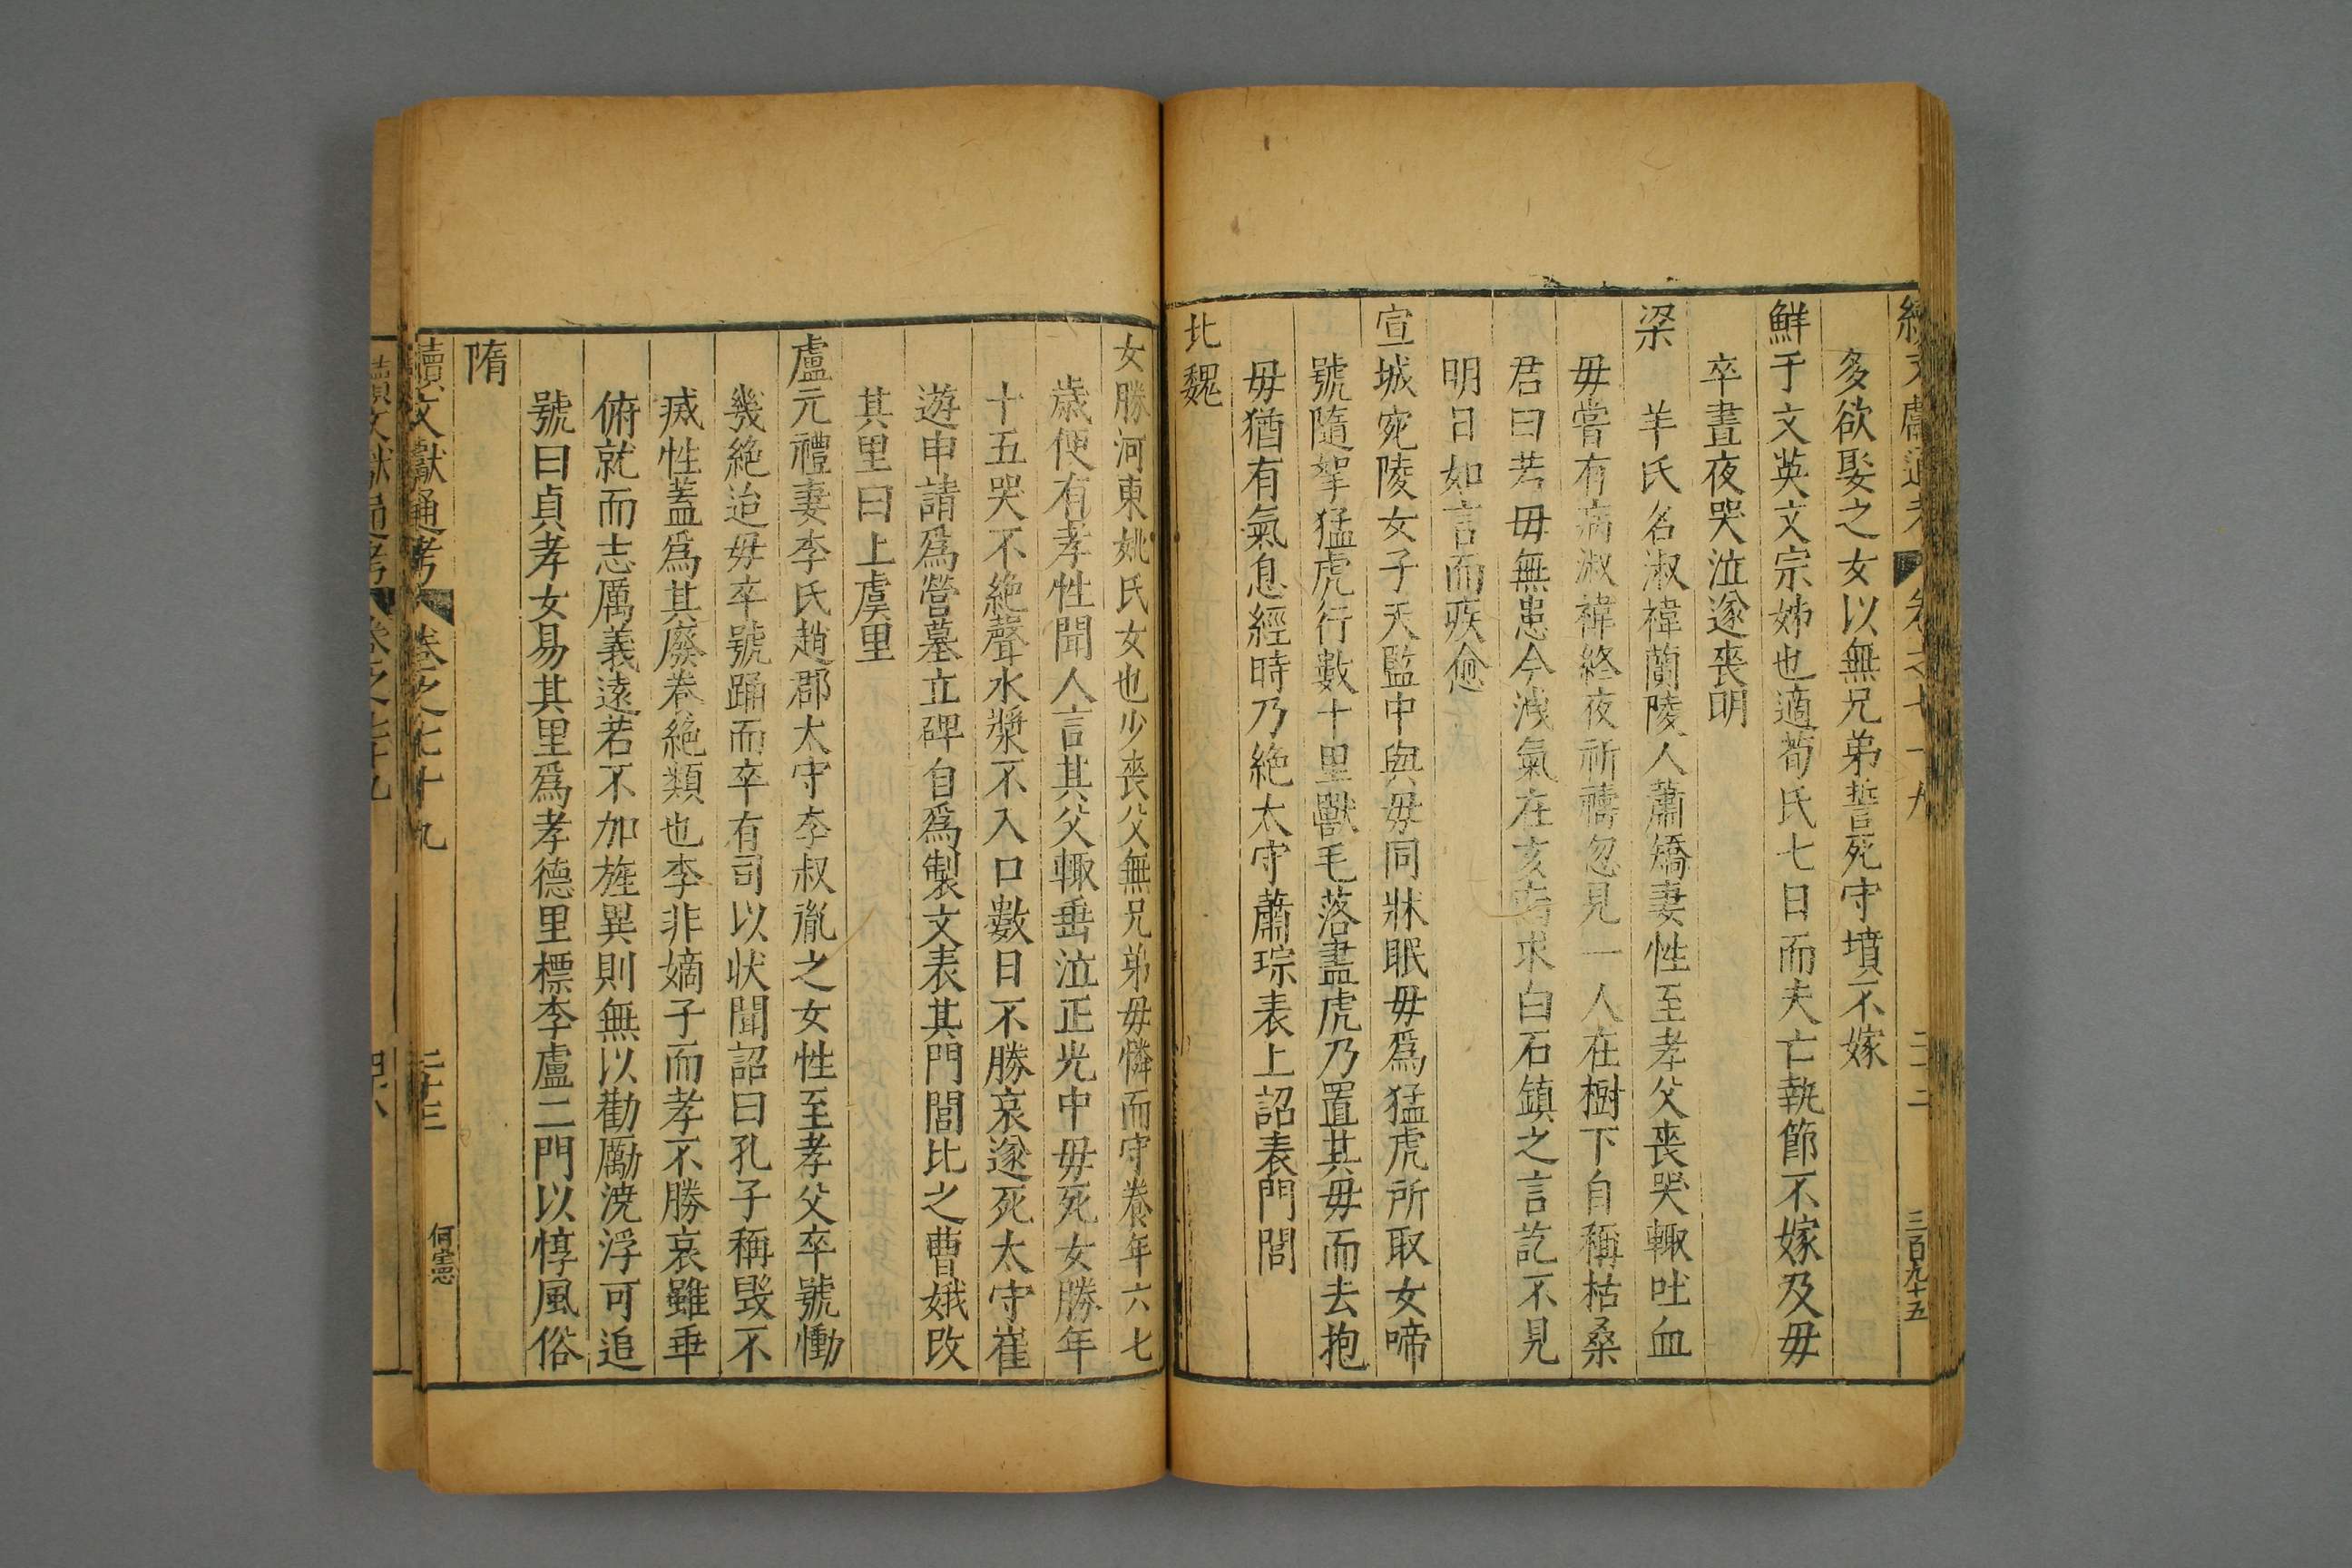 續文獻通考 卷之七十九 二十二 三百九十五
多欲娶之女以無兄弟誓死守墳不嫁
鮮于文英文宗姊也適荀氏七日而夫亡執節不嫁及毋
卒晝夜哭泣遂喪明
梁 羊氏名淑禕蘭陵人蕭矯妻性至孝父喪哭輙吐血
毋嘗有病淑禕終夜祈禱忽見一人在樹下自稱枯桑
君曰若毋無患今洩氣在亥求白石鎮之言訖不見
明日如言而疾愈
宣城宛陵女子天監中與毋同牀眠毋爲猛虎所取女啼
號隨挐猛虎行數十里獸毛落盡虎乃置其毋而去抱
毋猶有氣息經時乃絶太守蕭琮表上詔表門閭
北魏
女勝河東姚氏女也少喪父無兄弟毋憐而守養年六七
歲便有孝性聞人言其父輙垂泣正光中毋死女勝年
十五哭不絶聲水漿不入口數日不勝哀遂死太守崔
遊申請爲營墓立碑自爲製文表其門閭比之曹娥改
其里曰上虞里
盧元禮妻李氏趙郡太守李叔胤之女性至孝父卒號慟
幾絶迨毋卒號踊而卒有司以状聞詔曰孔子稱毁不
㓕性蓋爲其廢養絶類也李非嫡子而孝不勝哀雖乖
俯就而志厲義遠若不加旌異則無以勸勵澆浮可追
號曰貞孝女易其里爲孝德里標李盧二門以惇風俗
隋
續文獻通考 卷之七十九 二十三 何宝
續文獻通考 卷之七十九